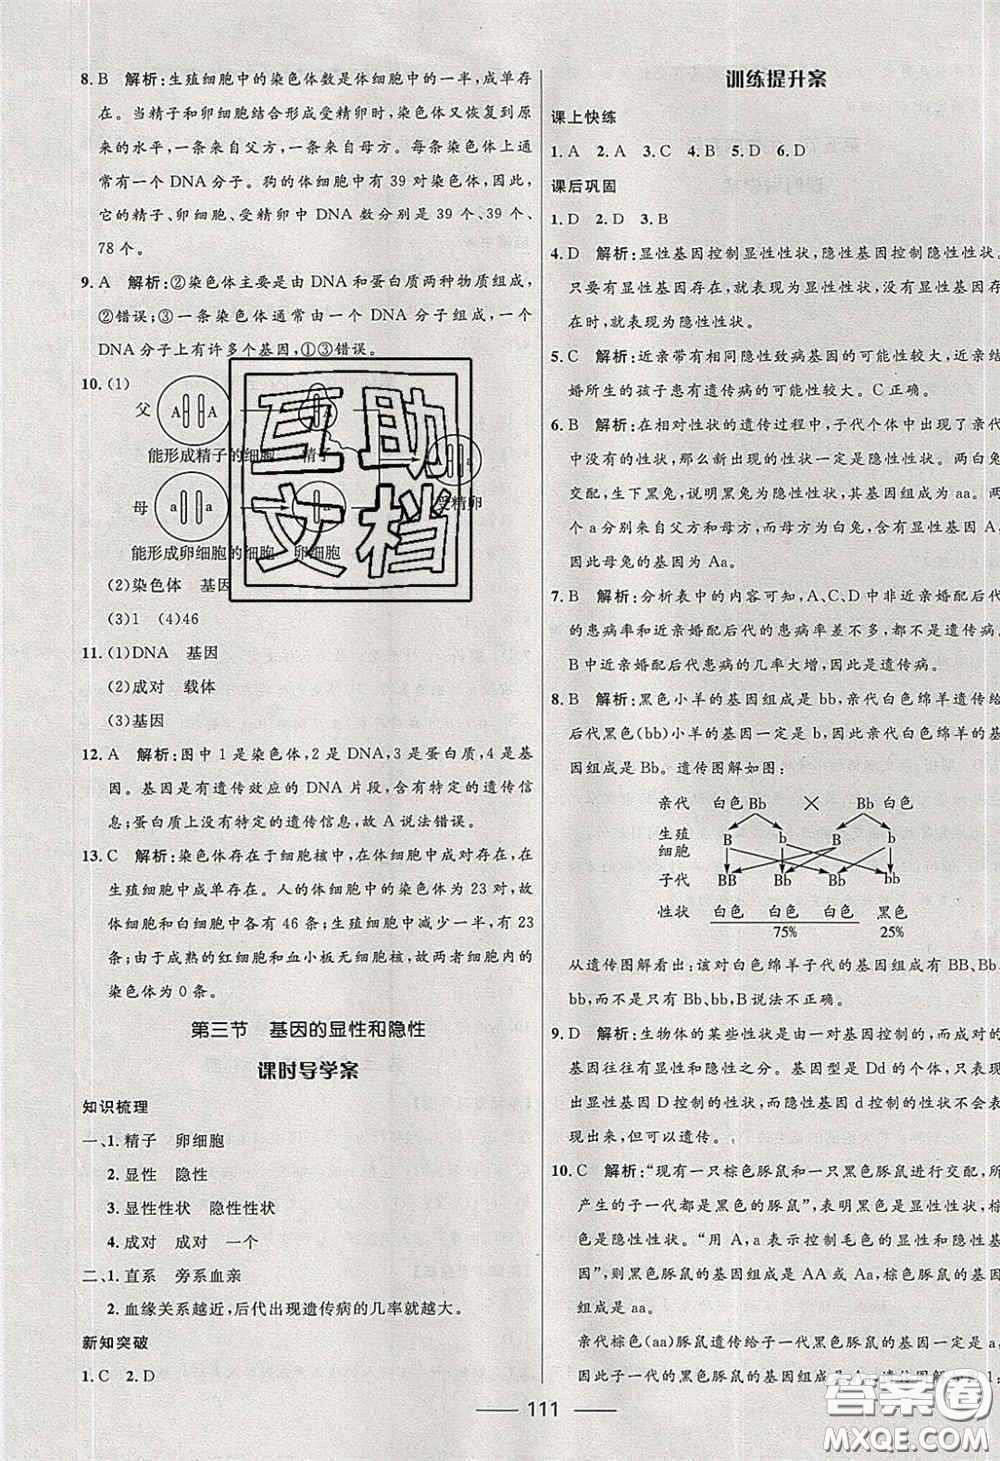 8. B 解析:生殖细胞中的染色体数是体细胞中的一半,成单存
在。当精子和卵细胞结合形成受精卵时,染色体又恢复到原
来的水平,一条来自父方,一条来自母方。每条染色体上通
常有一个 DNA 分子。狗的体细胞中有 39 对染色体,因此,
它的精子、卵细胞、受精卵中 DNA 数分别是 39 个、39 个、
78 个。
9. A 解析:②染色体主要是由 DNA 和蛋白质两种物质组成,
②错误;③一条染色体通常由一个 DNA 分子组成,一个
DNA 分子上有许多个基因,①③错误。
10. (1)
父 A A A A a
能形成精子的细胞 精子
母 a a a 受精卵
能形成卵细胞的细胞 卵细胞
互助
文档
(2)染色体 基因
(3)1 (4)46
11. (1)DNA 基因
(2)成对 载体
(3)基因
12. A 解析:图中 1 是染色体,2 是 DNA,3 是蛋白质,4 是基
因。基因是有遗传效应的 DNA 片段,含有特定的遗传信
息;蛋白质上没有特定的遗传信息,故 A 说法错误。
13. C 解析:染色体存在于细胞核中,在体细胞中成对存在,在
生殖细胞中成单存在。人的体细胞中的染色体为 23 对,故
体细胞和白细胞中各有 46 条;生殖细胞中减少一半,有 23
条;由于成熟的红细胞和血小板无细胞核,故两者细胞内的
染色体为 0 条。
第三节 基因的显性和隐性
课时导学案
知识梳理
一、1. 精子 卵细胞
2. 显性 隐性
3. 显性性状 隐性性状
4. 成对 成对 一个
二、1. 直系 旁系血亲
2. 血缘关系越近,后代出现遗传病的几率就越大。
新知突破
1. C 2. D
训练提升案
课上快练
1. A 2. A 3. C 4. B 5. D 6. D
课后巩固
1. D 2. D 3. B
4. D 解析:显性基因控制显性性状,隐性基因控制隐性性状,
只要有显性基因存在,就表现为显性性状,没有显性基因存
在时,就表现为隐性性状。
5. C 解析:近亲带有相同隐性致病基因的可能性较大,近亲结
婚所生的孩子患有遗传病的可能性较大。C 正确。
6. B 解析:在相对性状的遗传过程中,子代个体中出现了亲代
中没有的性状,那么新出现的性状一定是隐性性状。两白兔
交配,生下黑兔,说明黑兔为隐性性状,其基因组成为 aa。两
个 a 分别来自父方和母方,而母方为白兔,含有显性基因 A,
因此母兔的基因为 Aa。
7. B 解析:分析表中的内容可知,A、C、D 中非近亲婚配后代
的患病率和近亲婚配后代的患病率差不多,都不是遗传病。
B 中近亲婚配后代患病的几率大增,因此是遗传病。
8. B 解析:黑色小羊的基因组成是 bb,亲代白色绵羊遗传给
后代黑色(bb)小羊的基因一定是 b,因此亲代白色绵羊的
基因组成是 Bb。遗传图解如图:
亲代 白色 Bb × Bb 白色
生殖 B b B b
细胞
子代 BB Bb Bb bb
性状 白色 白色 黑色
75% 25%
从遗传图解看出:该对白色绵羊子代的基因组成有 BB、Bb、
bb,而不是只有 BB、bb,B 说法不正确。
9. D 解析:生物体的某些性状是由一对基因控制的,而成对的
基因往往有显性和隐性之分。基因型是 Dd 的个体会表现
出显性基因 D 控制的性状,而隐性基因 d 控制的性状不会表
现出来,但可以遗传。
10. C 解析:“现有一只棕色豚鼠和一只黑色豚鼠进行交配,所
产生的子一代都是黑色的豚鼠”,表明黑色是显性性状,棕
色是隐性性状。“用 A,a 表示控制毛色的显性和隐性基
因”,则黑色豚鼠的基因组成是 AA 或 Aa,棕色豚鼠的基因
组成是 aa。
亲代棕色(aa)豚鼠遗传给子一代黑色豚鼠的基因一定是 a,
因此子一代的黑色豚鼠的基因组成是
111
答案圈
MXQE.COM